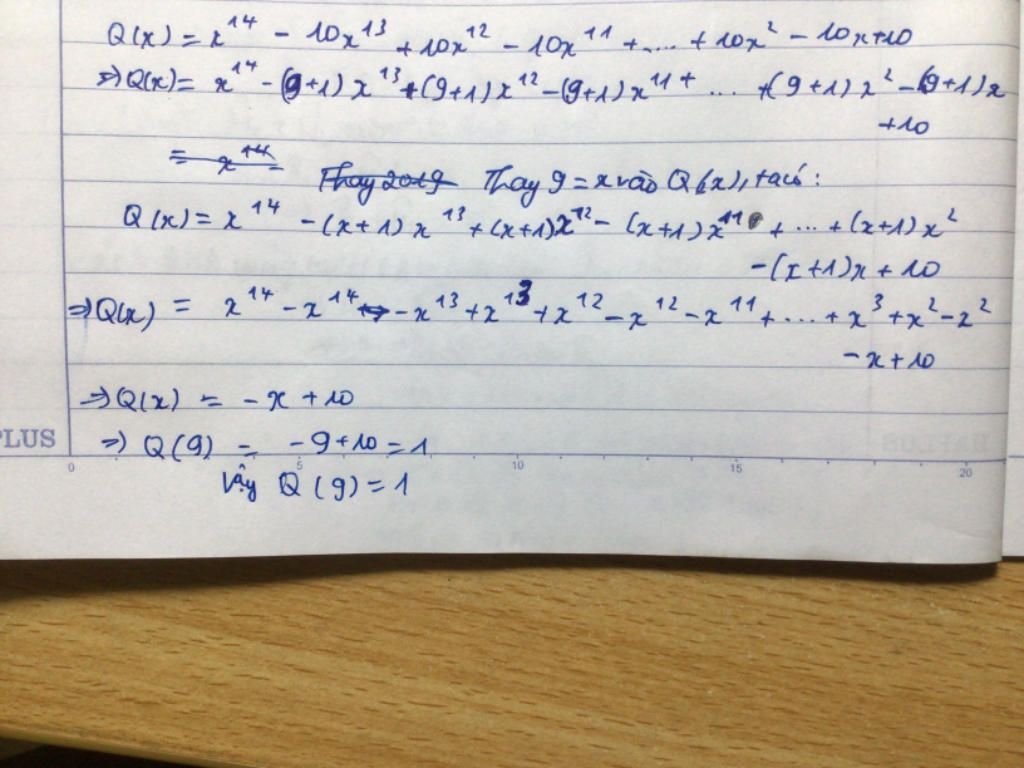 Q(x) = x¹⁴ - 10x¹³ + 10x¹² - 10x¹¹ + .... + 10x² - 10x + 10
=> Q(x) = x¹⁴ - (9+1) x¹³ + (9+1) x¹² - (9+1) x¹¹ + ... + (9+1) x² - (9+1) x
+10
= x¹⁴ -
Thay 2019 Thay 9 = x vào Q(x), ta có :
Q(x) = x¹⁴ - (x+1) x¹³ + (x+1) x¹² - (x+1) x¹¹ + ... + (x+1) x²
-(x+1)x + 10
=> Q(x) = x¹⁴ - x¹⁴ - x¹³ + x¹³ + x¹² - x¹² - x¹¹ + .... + x³ + x² - x²
- x + 10
=> Q(x) = - x + 10
=> Q(9) = - 9 + 10 = 1
Vậy Q(9) = 1
PLUS
0 5 10 15 20